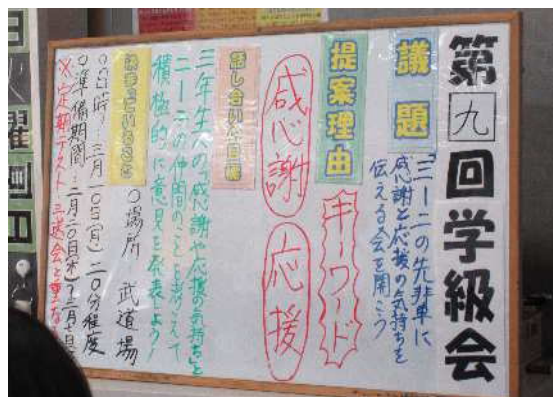 第九回学級会
議題
「三一二の先輩に
感謝と応援の気持ちを
伝える会を開こう
提案理由
キーワード
感謝
応援
話し合いのめあて
三年生への「感謝や応援の気持ち」と
二一二の仲間のことを考えて
積極的に意見を発表しよう!
決まっていること
○日時…三月一〇日(月)二〇分程度
○場所…武道場
○準備期間…二月二〇日(木)〜三月七日
※定期テスト 三送会と重な